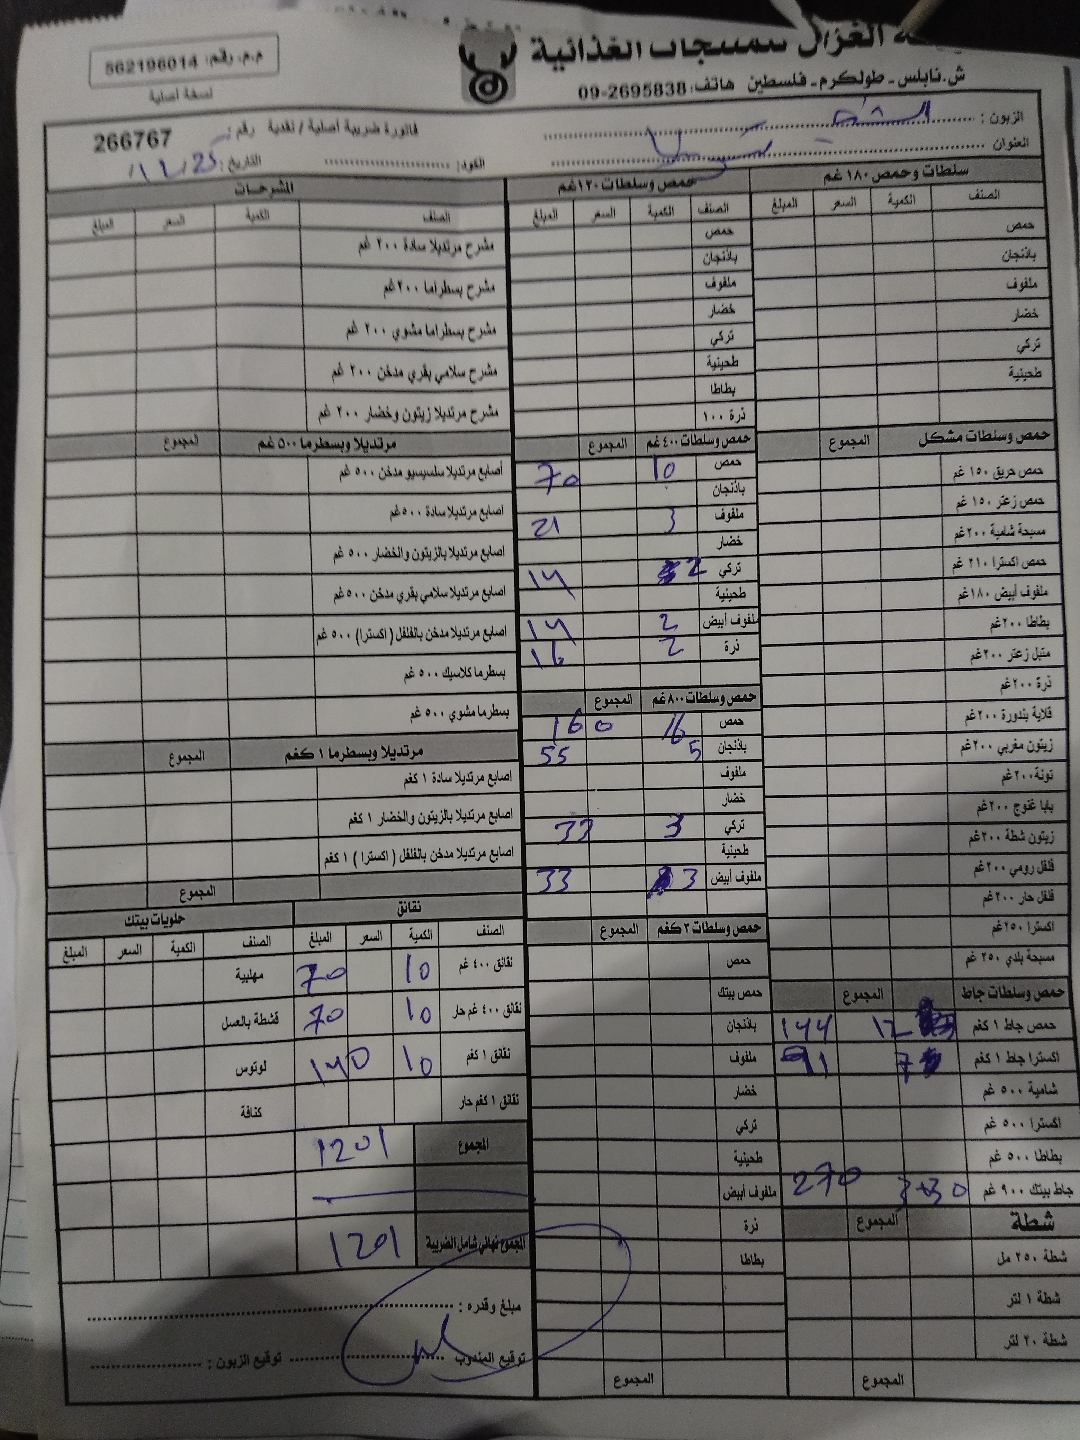 الغزال للمنتجات الغذائية
ش.نابلس - طولكرم - فلسطين هاتف: 2695838-09
م.م. رقم: 562196014
نسخة أصلية
الزبون :
العنوان
فاتورة ضريبية أصلية / نقدية رقم: 266767
الكود: التاريخ:
سلطات وحمص ١٨٠ غم
الصنف الكمية السعر المبلغ
حمص
باذنجان
ملفوف
خضار
تركي
طحينية
حمص وسلطات مشكل المجموع
حمص حريق ١٥٠ غم
حمص زعتر ١٥٠ غم
مسبحة شامية ٢٠٠غم
حمص اكسترا ٢١٠ غم
ملفوف أبيض ١٨٠غم
بطاطا ٢٠٠غم
متبل زعتر ٢٠٠غم
ذرة ٢٠٠غم
قلاية بندورة ٢٠٠غم
زيتون مغربي ٢٠٠غم
تونة٢٠٠غم
بابا غنوج ٢٠٠غم
زيتون شطة ٢٠٠غم
فلفل رومي ٢٠٠غم
فلفل حار ٢٠٠غم
اكسترا ٢٥٠غم
مسبحة بلدي ٢٥٠ غم
حمص وسلطات جاط المجموع
حمص جاط ١ كغم 12 144
اكسترا جاط ١ كغم 7 91
شامية ٥٠٠ غم
اكسترا ٥٠٠ غم
بطاطا ٥٠٠ غم
جاط بيتك ٩٠٠ غم 270
شطة المجموع
شطة ٢٥٠ مل
شطة ١ لتر
شطة ٢٠ لتر
المجموع
حمص وسلطات ١٢٠غم
الصنف الكمية السعر المبلغ
حمص
باذنجان
ملفوف
خضار
تركي
طحينية
بطاطا
ذرة ١٠٠
حمص وسلطات ٤٠٠غم المجموع
حمص 10 70
باذنجان
ملفوف 3 21
خضار
تركي 2 14
طحينية
ملفوف أبيض 2 14
ذرة 2 16
حمص وسلطات ٨٠٠غم المجموع
حمص 16 160
باذنجان 5 55
ملفوف
خضار
تركي 3 33
طحينية
ملفوف أبيض 3 33
حمص وسلطات ٣كغم المجموع
حمص
حمص بيتك
باذنجان
ملفوف
خضار
تركي
طحينية
ملفوف أبيض
ذرة
بطاطا
المجموع
المشرحات
الصنف الكمية السعر المبلغ
مشرح مرتديلا سادة ٢٠٠ غم
مشرح بسطراما ٢٠٠غم
مشرح بسطراما مشوي ٢٠٠ غم
مشرح سلامي بقري مدخن ٢٠٠ غم
مشرح مرتديلا زيتون وخضار ٢٠٠ غم
مرتديلا وبسطرما ٥٠٠ غم المجموع
أصابع مرتديلا سلسيسيو مدخن ٥٠٠ غم
أصابع مرتديلا سادة ٥٠٠غم
أصابع مرتديلا بالزيتون والخضار ٥٠٠ غم
أصابع مرتديلا سلامي بقري مدخن ٥٠٠غم
أصابع مرتديلا مدخن بالفلفل (اكسترا) ٥٠٠ غم
بسطرما كلاسيك ٥٠٠ غم
بسطرما مشوي ٥٠٠ غم
مرتديلا وبسطرما ١ كغم المجموع
أصابع مرتديلا سادة ١ كغم
أصابع مرتديلا بالزيتون والخضار ١ كغم
أصابع مرتديلا مدخن بالفلفل (اكسترا) ١ كغم
المجموع
نقانق
الصنف الكمية السعر المبلغ
نقانق ٤٠٠ غم 10 70
نقانق ٤٠٠ غم حار 10 70
نقانق ١ كغم 10 140
نقانق ١ كغم حار
المجموع 1201
المجموع نهائي شامل الضريبة 1201
حلويات بيتك
الصنف الكمية السعر المبلغ
مهلبية
قشطة بالعسل
لوتوس
كنافة
مبلغ وقدره :
توقيع المندوب توقيع الزبون :